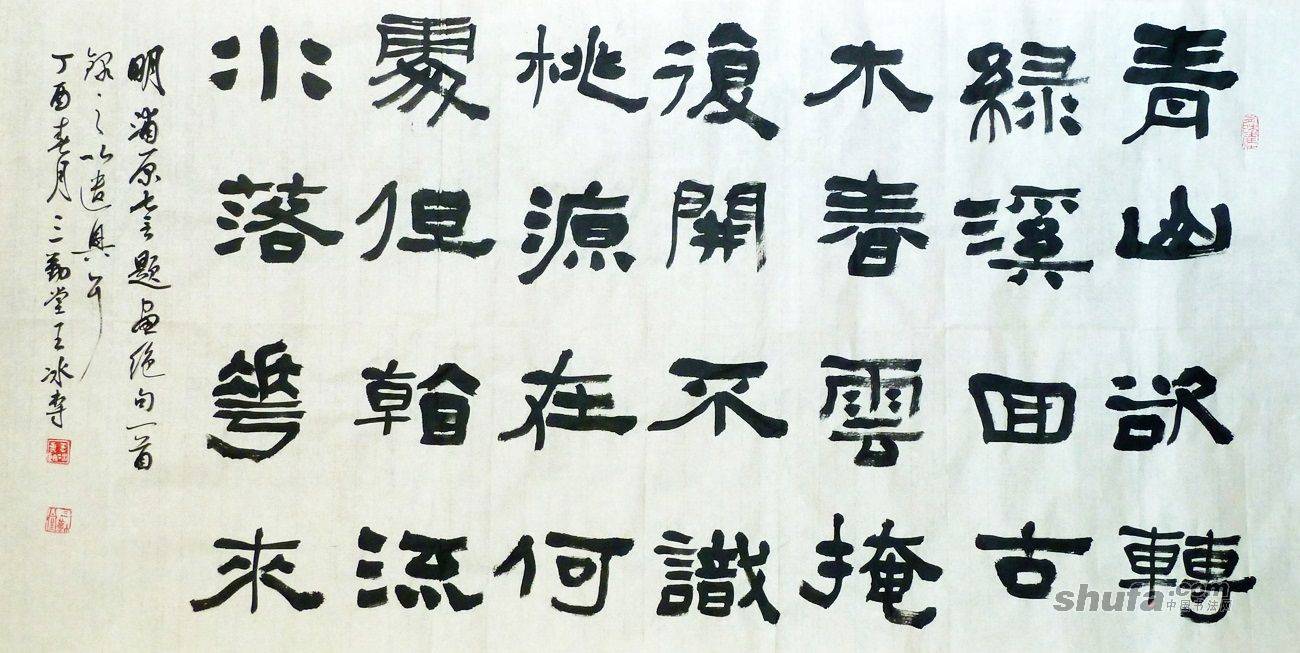 青山欲轉
綠溪回古
木春雲掩
復開不識
桃源在何
處但看流
水落華來
明 題畫絕句一首
錄之以遣興
丁酉春月三勤堂王冰
shufa.com
中国书法网